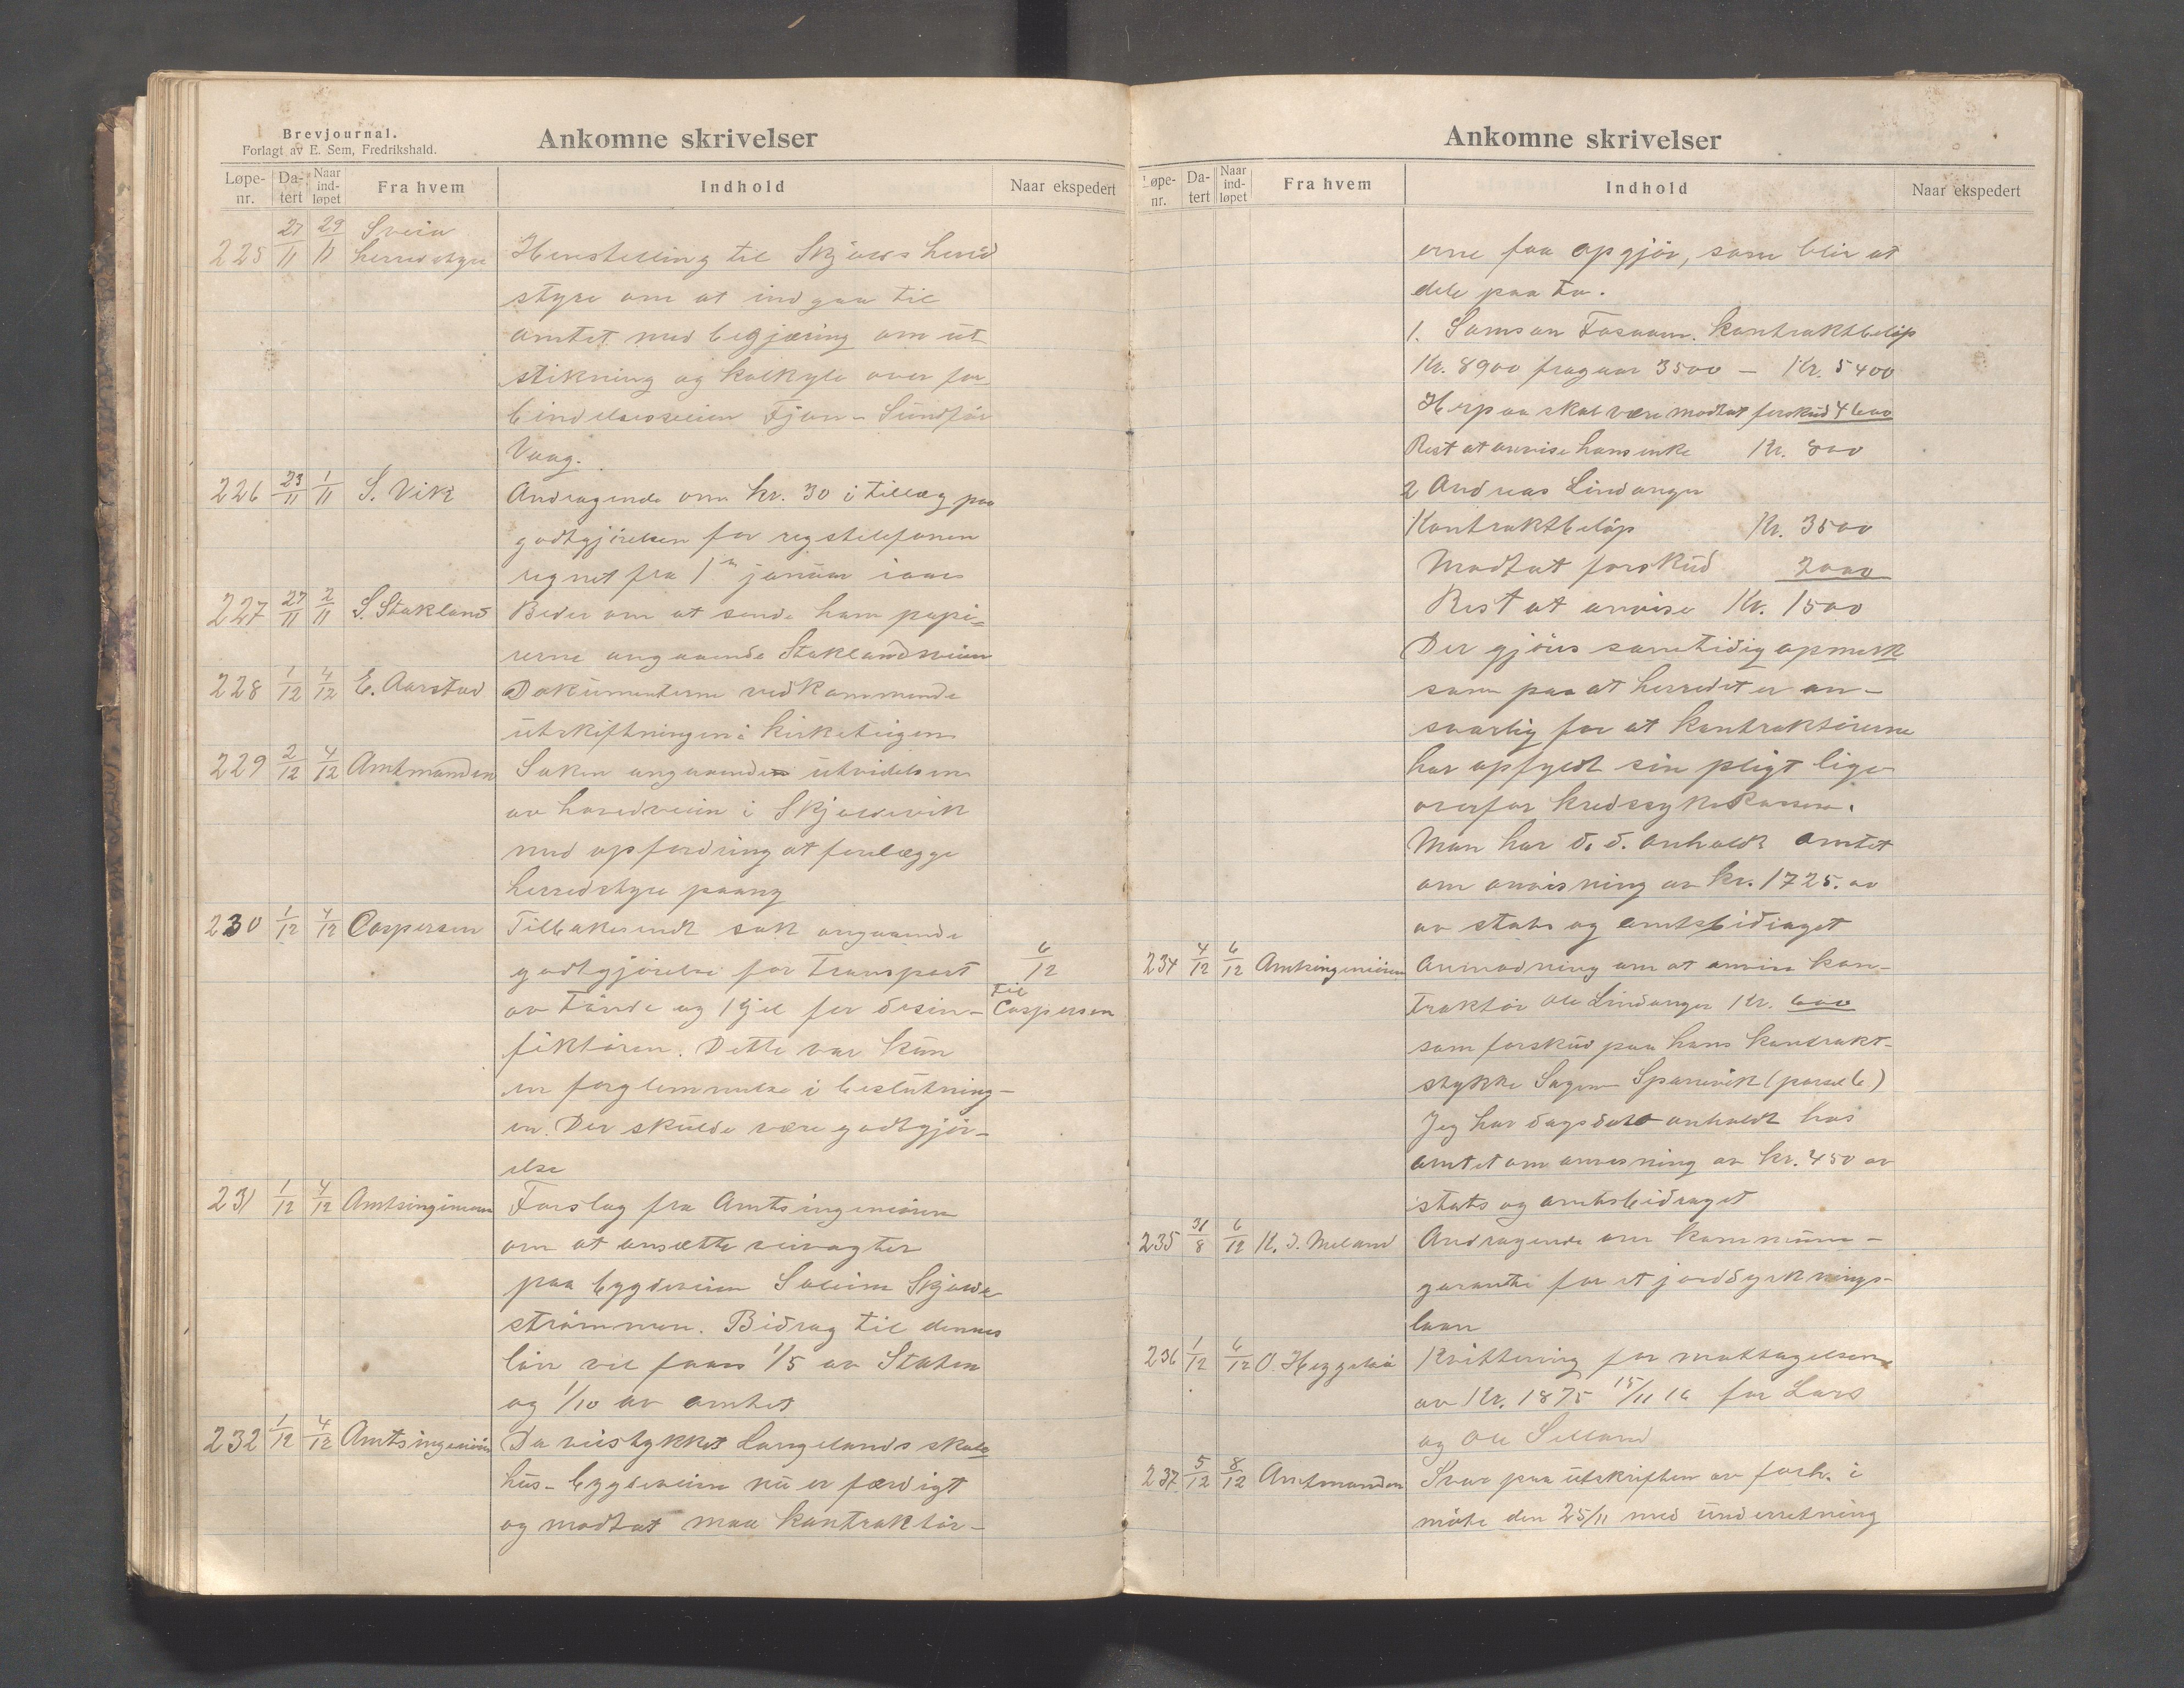 Brevjournal.
Forlagt av E. Sem, Fredrikshald.
Ankomne skrivelser
Løpe-nr. Da-tert Naar ind-løpet Fra hvem Indhold Naar ekspedert
225 27/11 29/11 Sveio herredstyre Henstelling til Skjolds herred
styre om at indgaa til
amtet med begjæring om ut
stikning og kalkyle over for
bindelsesveien Fjon - Sundfør
Vaag.
226 23/11 1/11 S. Vik Andragende om kr. 30 i tillæg paa
godtgjørelsen for rigstelefonen
regnet fra 1ste januar iaar
227 27/11 2/11 S. Stakland Beder om at sende ham papi=
rerne angaaende Staklandsveien
228 1/12 4/12 E. Aarstad Dokumenterne vedkommende
utskiftningen i kirketeigen
229 2/12 4/12 Amtmanden Saken angaaende utvidelsen
av hovedveien i Skjoldevik
med opfordring at forelægge
herredstyre paany
230 1/12 4/12 Caspersen Tilbakesendt sak angaaende
godtgjørelse for transport 6/12
av tønde og kjel for desin- til Caspersen
fiktøren. Dette var kun
en forglemmelse i beslutning-
en. Der skulde være godtgjør-
else
231 1/12 4/12 Amtsingeniøren Forslag fra Amtsingeniøren
om at ansætte veivogter
paa bygdeveien Soleim Skjolde
strømmen. Bidrag til dennes
løn vil faaes 1/5 av Staten
og 1/10 av amtet
232 1/12 4/12 Amtsingeniøren Da veistykket Langelands skole
hus - bygdeveien nu er færdigt
og modtat maa kontraktør-
Ankomne skrivelser
Løpe-nr. Da-tert Naar ind-løpet Fra hvem Indhold Naar ekspedert
erne faa opgjør, som blir at
dele paa to.
1. Samson kontraktbeløp
Kr. 8900 fragaar 3500 - Kr. 5400
Herpaa skal være modtat forskud 4600
Rest at anvise hans enke Kr. 800
2 Andreas Lindanger
Kontraktbeløp Kr. 3500
Modtat forskud 2000
Rest at anvise Kr. 1500
Der gjøres samtidig opmerk
som paa at herredet er an-
svarlig for at kontraktørerne
har opfyldt sin pligt lige-
overfor kredssykekassen.
Man har d. d. anholdt amtet
om anvisning av kr. 1725. av
av stats og amtsbidraget
234 4/12 6/12 Amtsingeniøren Anmodning om at anvise kon-
traktør Ole Lindanger Kr. 600
som forskud paa hans kontrakt-
stykke Sagen - Spannevik (parsel 6)
Jeg har dagsdato anholdt hos
amtet om anvisning av kr. 450 av
stats og amtsbidraget
235 31/8 6/12 K. J. Meland Andragende om kommune-
garanti for et jorddyrknings-
laan
236 1/12 6/12 O. Kvittering for mottagelsen
av Kr. 1875 15/11 16 for Lars
og Ole Selland
237 5/12 8/12 Amtmanden Svar paa utskriften av forh. i
møte den 25/11 med underretning